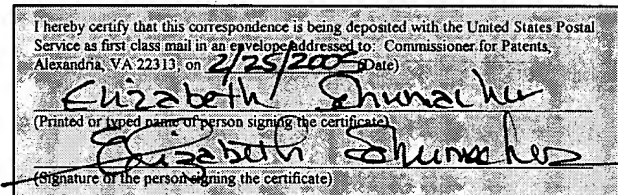 I hereby certify that this correspondence is being deposited with the United States Postal
Service as first class mail in an envelope addressed to: Commissioner for Patents,
Alexandria, VA 22313, on 2/25/2005 (Date)
Elizabeth Shumacher
(Printed or typed name of person signing the certificate)
Elizabeth Shumacher
(Signature of the person signing the certificate)